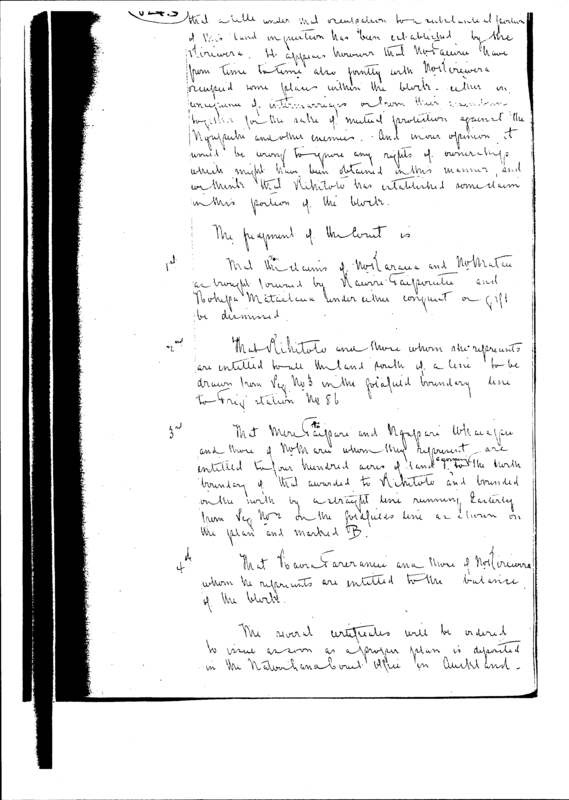 that a title under that occupation to a substantial portion
of this land in question has been established by the
Kiriwera. It appears however that have
from time to time also jointly with Ngkiriwera
occupied some places within the block either in
consequence of intermarriages or from their
together for the sake of mutual protection against the
Ngapuhi and other enemies. And in our opinion it
would be wrong to ignore any rights of ownership
which might have been obtained in this manner and
we think that Rihitoto has established some claim
in this portion of the block.
The judgment of the Court is
1st That the claims of and
as brought forward by and
under either conquest or gift
be dismissed
2nd That Rihitoto and those whom she represents
are entitled to all the land south of a line to be
drawn from Peg No 3 in the goldfield boundary line
to Trig station No 86
3rd That Mere Taipari and Ngapari Whaiapu
and those of whom they represent are
entitled to four hundred acres of land to the North
boundary of that awarded to Rihitoto and bounded
on the north by a straight line running Easterly
from Peg No 2 on the goldfields line as shown on
the plan and marked B.
4th That and those of Ngkiriwera
whom he represents are entitled to the balance
of the block.
The several certificates will be ordered
to issue as soon as a proper plan is deposited
in the Native Land Court office in Auckland.